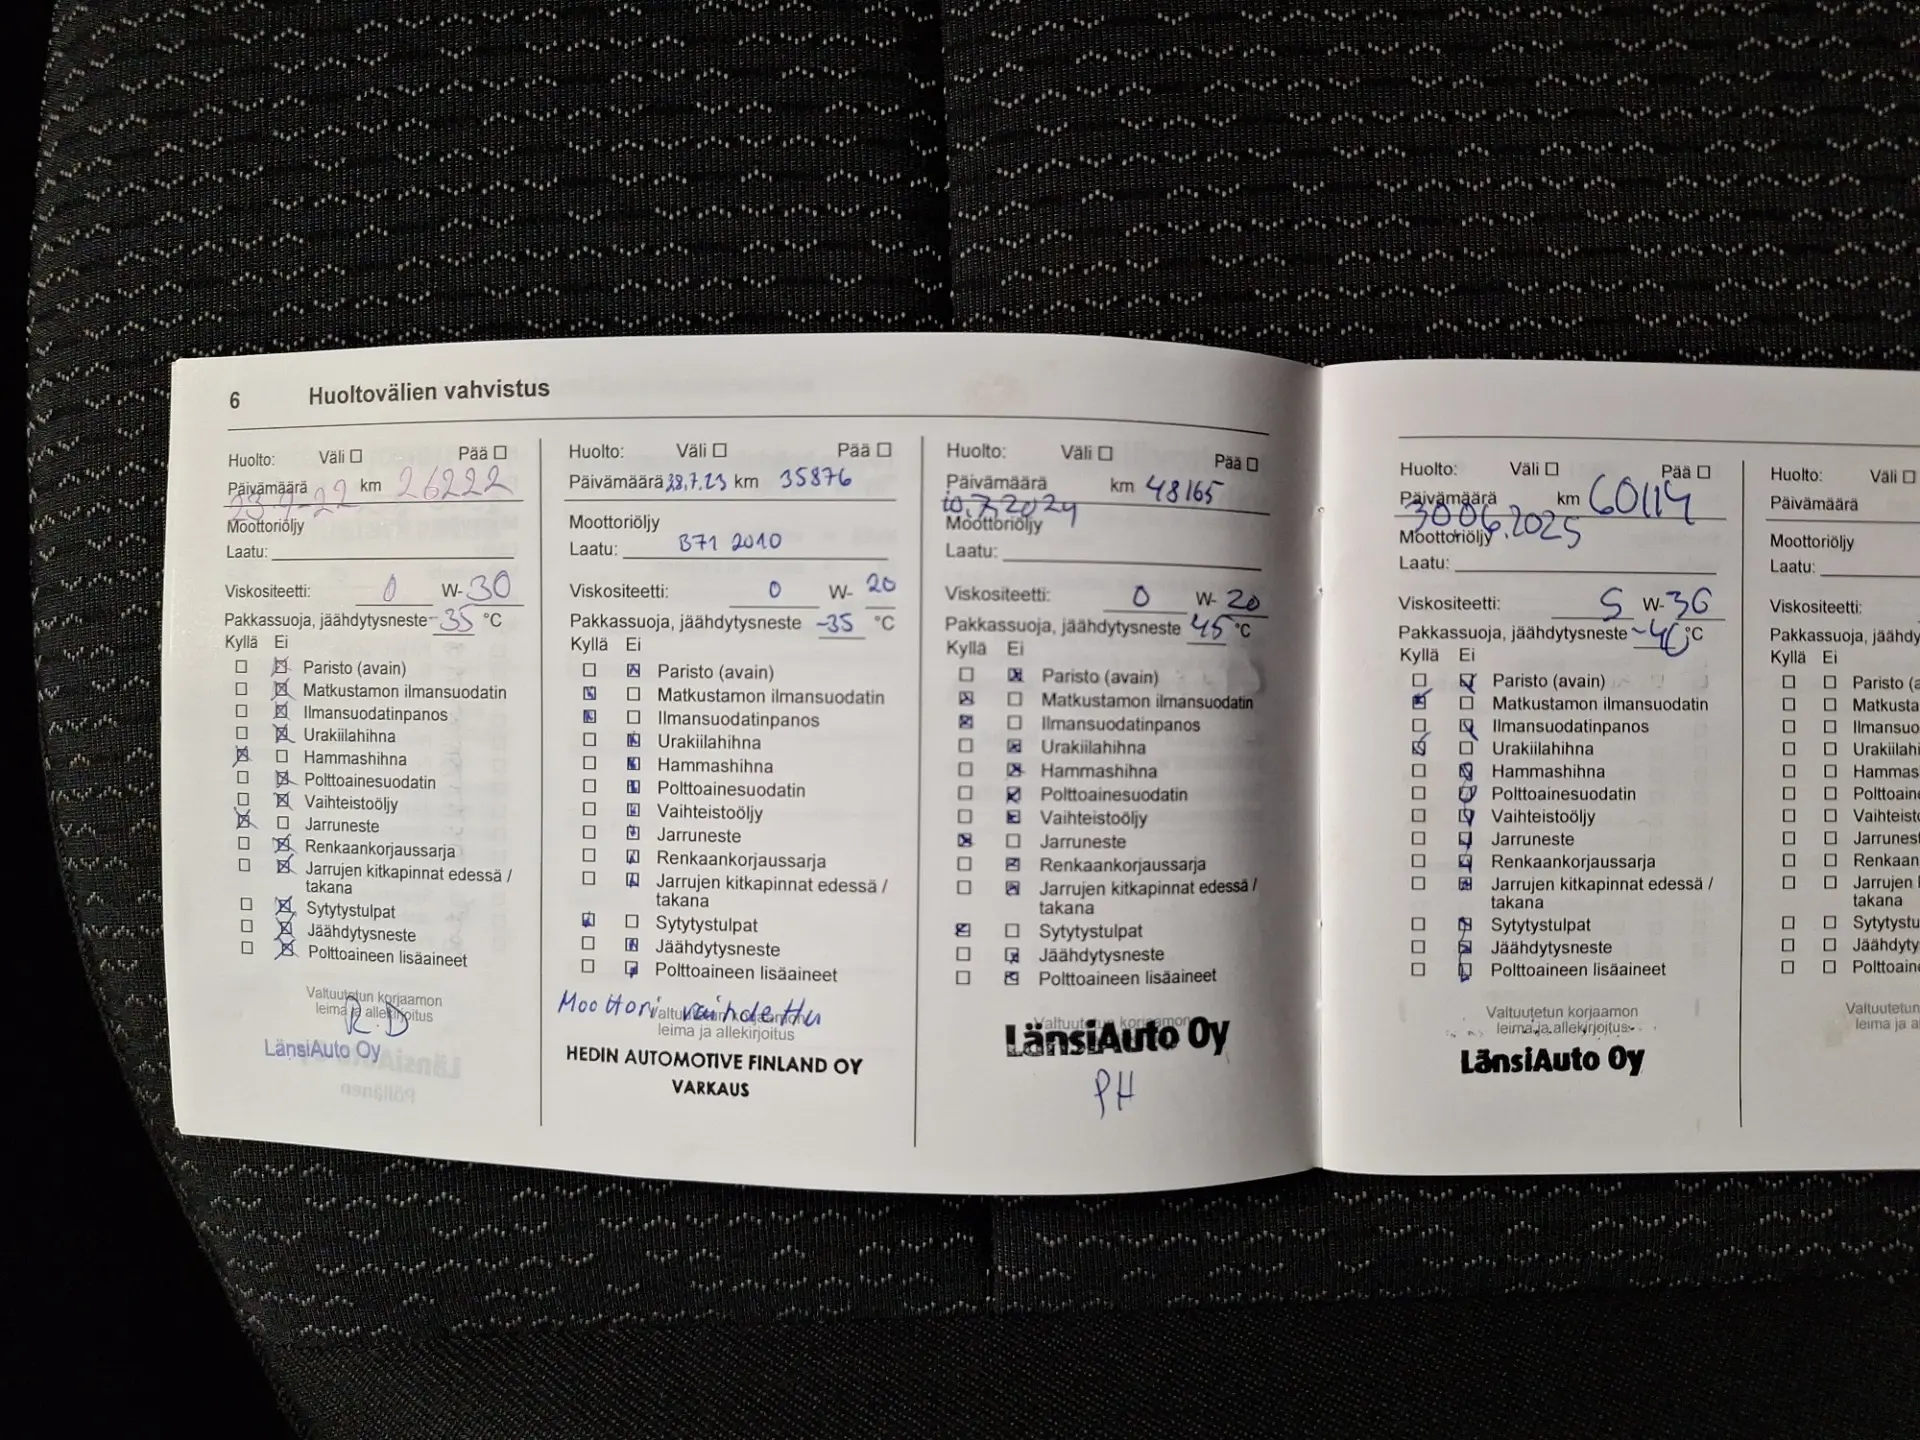 6 Huoltovälien vahvistus
Huolto: Väli Pää
Päivämäärä km 26222
22
Moottoriöljy
Laatu:
Viskositeetti: 0 W-30
Pakkassuoja, jäähdytysneste -35 °C
Kyllä Ei
Paristo (avain)
Matkustamon ilmansuodatin
Ilmansuodatinpanos
Urakiilahihna
Hammashihna
Polttoainesuodatin
Vaihteistoöljy
Jarruneste
Renkaankorjaussarja
Jarrujen kitkapinnat edessä /
takana
Sytytystulpat
Jäähdytysneste
Polttoaineen lisäaineet
Valtuutetun korjaamon
leima ja allekirjoitus
R.D
LänsiAuto Oy
Huolto: Väli Pää
Päivämäärä 28.7.23 km 35876
Moottoriöljy
Laatu: B71 2010
Viskositeetti: 0 W- 20
Pakkassuoja, jäähdytysneste -35 °C
Kyllä Ei
Paristo (avain)
Matkustamon ilmansuodatin
Ilmansuodatinpanos
Urakiilahihna
Hammashihna
Polttoainesuodatin
Vaihteistoöljy
Jarruneste
Renkaankorjaussarja
Jarrujen kitkapinnat edessä /
takana
Sytytystulpat
Jäähdytysneste
Polttoaineen lisäaineet
Moottori vaihdettu
Valtuutetun korjaamon
leima ja allekirjoitus
HEDIN AUTOMOTIVE FINLAND OY
VARKAUS
Huolto: Väli Pää
Päivämäärä km 48165
10.7.2024
Moottoriöljy
Laatu:
Viskositeetti: 0 W- 20
Pakkassuoja, jäähdytysneste 45 °C
Kyllä Ei
Paristo (avain)
Matkustamon ilmansuodatin
Ilmansuodatinpanos
Urakiilahihna
Hammashihna
Polttoainesuodatin
Vaihteistoöljy
Jarruneste
Renkaankorjaussarja
Jarrujen kitkapinnat edessä /
takana
Sytytystulpat
Jäähdytysneste
Polttoaineen lisäaineet
Valtuutetun korjaamon
LänsiAuto Oy
PH
Huolto: Väli Pää
Päivämäärä km 60114
30.06.2025
Moottoriöljy
Laatu:
Viskositeetti: 5 W-30
Pakkassuoja, jäähdytysneste -40 °C
Kyllä Ei
Paristo (avain)
Matkustamon ilmansuodatin
Ilmansuodatinpanos
Urakiilahihna
Hammashihna
Polttoainesuodatin
Vaihteistoöljy
Jarruneste
Renkaankorjaussarja
Jarrujen kitkapinnat edessä /
takana
Sytytystulpat
Jäähdytysneste
Polttoaineen lisäaineet
Valtuutetun korjaamon
leima ja allekirjoitus
LänsiAuto Oy
Huolto: Väli
Päivämäärä
Moottoriöljy
Laatu:
Viskositeetti:
Pakkassuoja, jäähdy
Kyllä Ei
Paristo (a
Matkusta
Ilmansuo
Urakiilahi
Hammas
Polttoaine
Vaihteisto
Jarrunest
Renkaan
Jarrujen k
takana
Sytytystu
Jäähdyty
Polttoaine
Valtuutetun
leima ja al